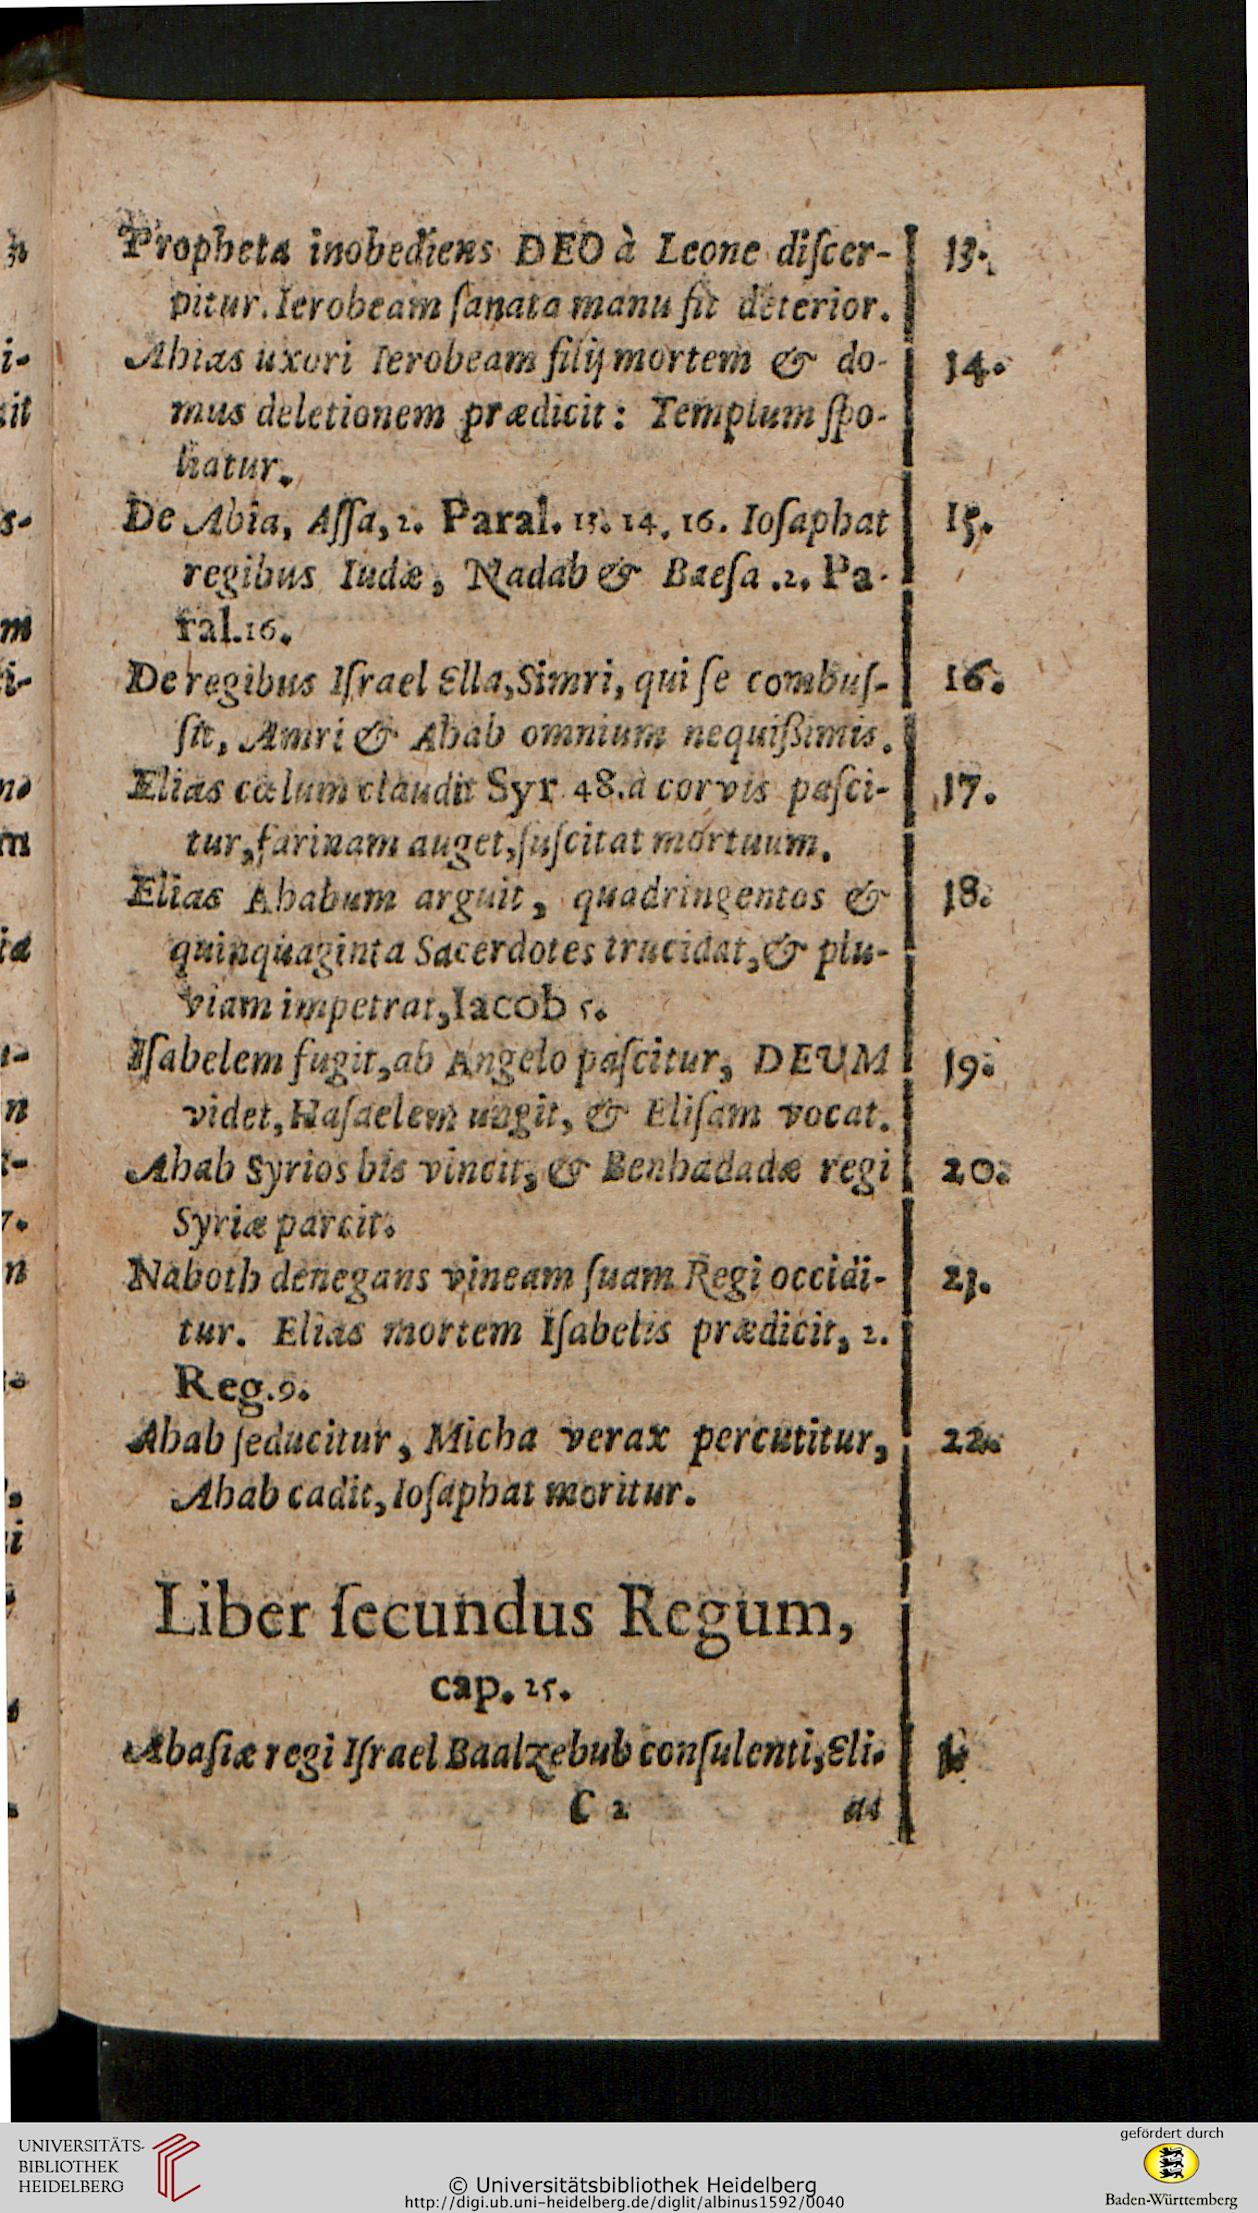 Propheta inobediens DEO à Leone diſcer- 13.
pitur. Ierobeam ſanata manu fit deterior.
Ahias uxori Ierobeam filij mortem & do- 14.
mus deletionem prædicit: Templum ſpo-
liatur.
De Abia, Aſſa, 2. Paral. 13. 14. 16. Ioſaphat 15.
regibus Iudæ, Nadab & Baeſa .2. Pa-
ral.16.
De regibus Iſrael Ella, Simri, qui ſe combuſ- 16.
ſit, Amri & Ahab omnium nequißimis.
Elias cœlum claudit Syr 48. à corvis paſci- 17.
tur, farinam auget, ſuſcitat mortuum.
Elias Ahabum arguit, quadringentos & 18.
quinquaginta Sacerdotes trucidat, & plu-
viam impetrat, Iacob 5.
Iſabelem fugit, ab Angelo paſcitur, DEUM 19.
videt, Haſaelem ungit, & Eliſam vocat.
Ahab Syrios bis vincit, & Benhadadæ regi 20.
Syriæ parcit.
Naboth denegans vineam ſuam Regi occidi- 21.
tur. Elias mortem Iſabelis prædicit, 2.
Reg.9.
Ahab ſeducitur, Micha verax percutitur, 22.
Ahab cadit, Ioſaphat moritur.
Liber ſecundus Regum,
cap. 25.
Ahaſiæ regi Iſrael Baalzebub conſulenti, Eli-
C 2 as
UNIVERSITÄTS-
BIBLIOTHEK
HEIDELBERG
© Universitätsbibliothek Heidelberg
http://digi.ub.uni-heidelberg.de/diglit/albinus1592/0040
gefördert durch
Baden-Württemberg